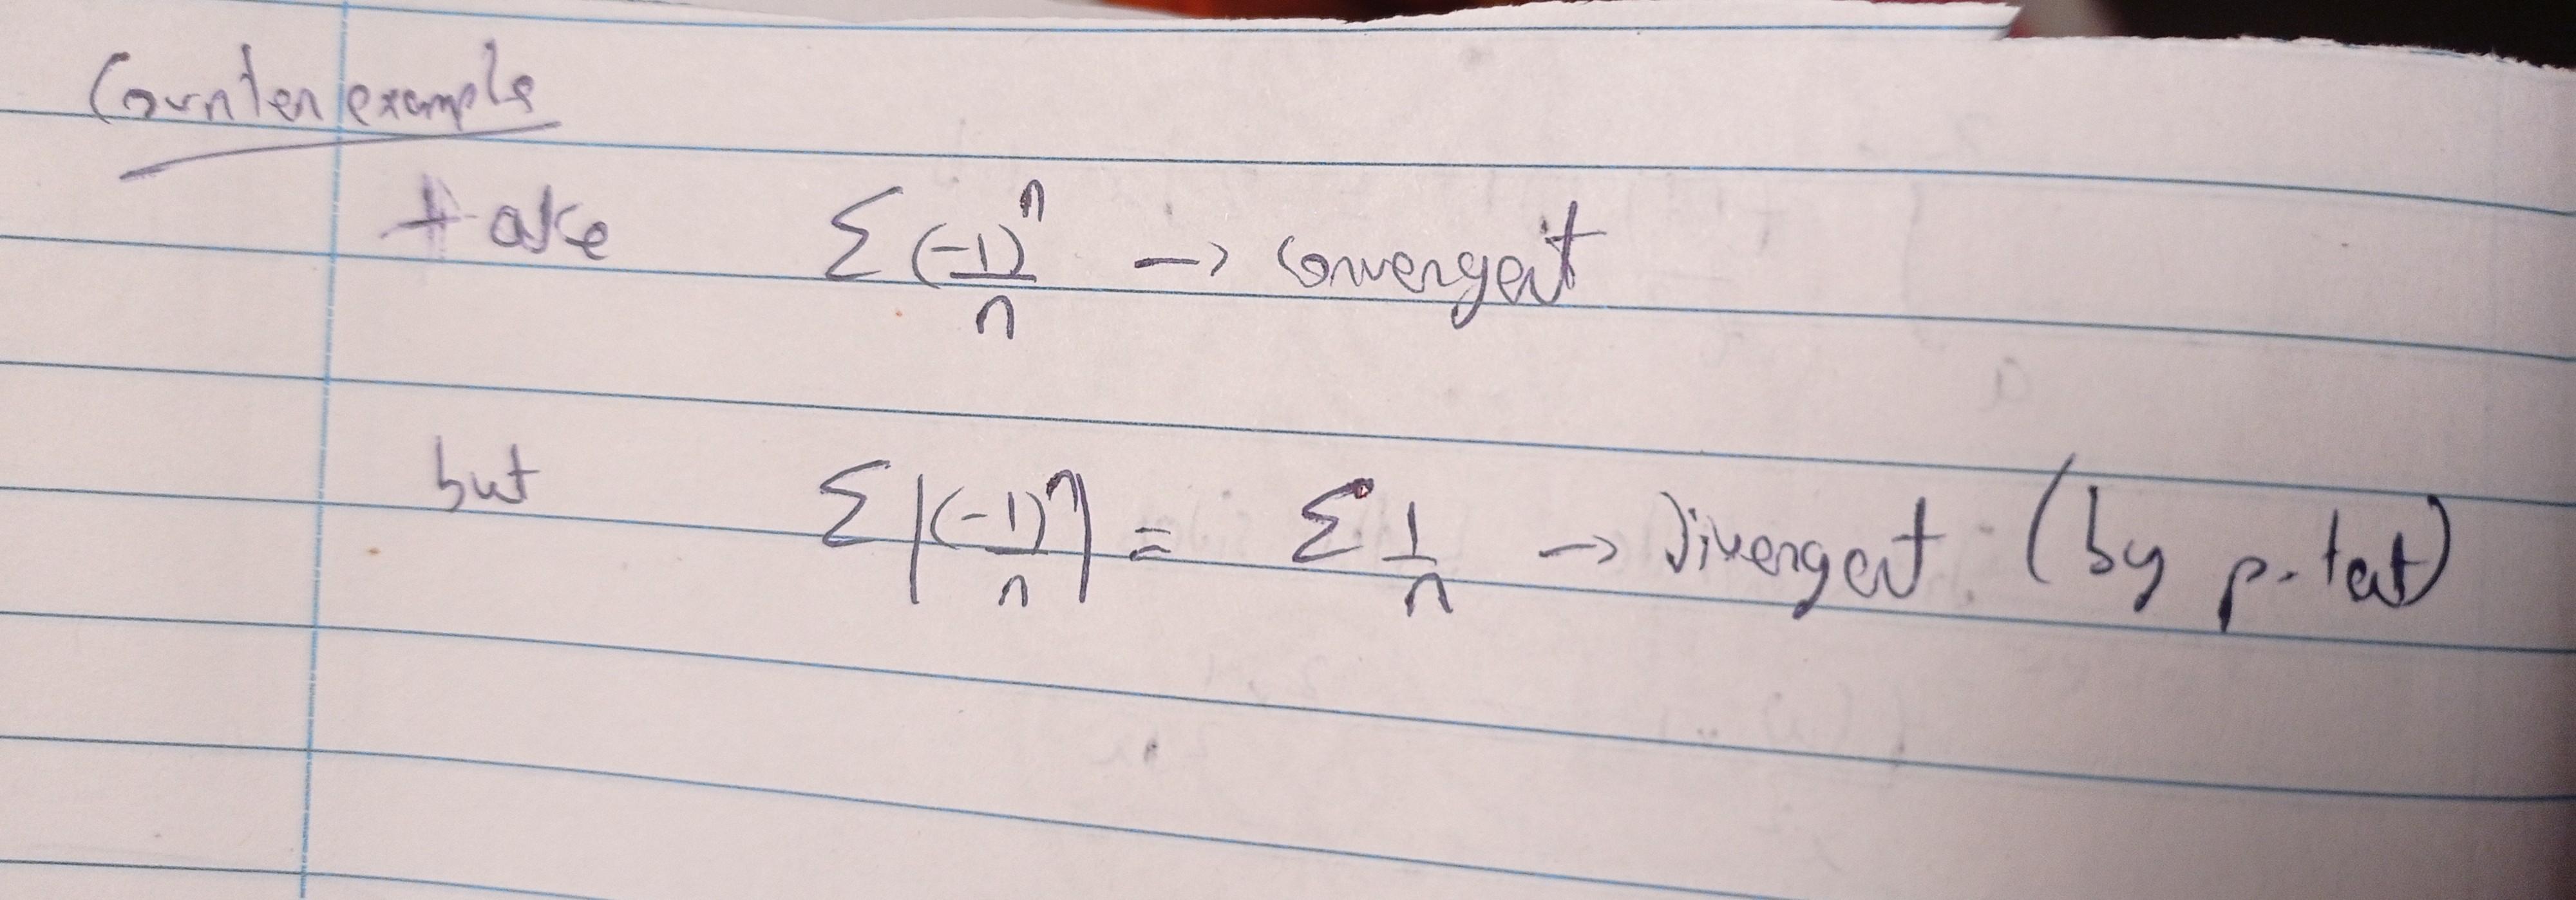 Counter example
take Σ (-1)^n / n → convergent
but Σ |(-1)^n / n| = Σ 1/n → Divergent (by p-test)